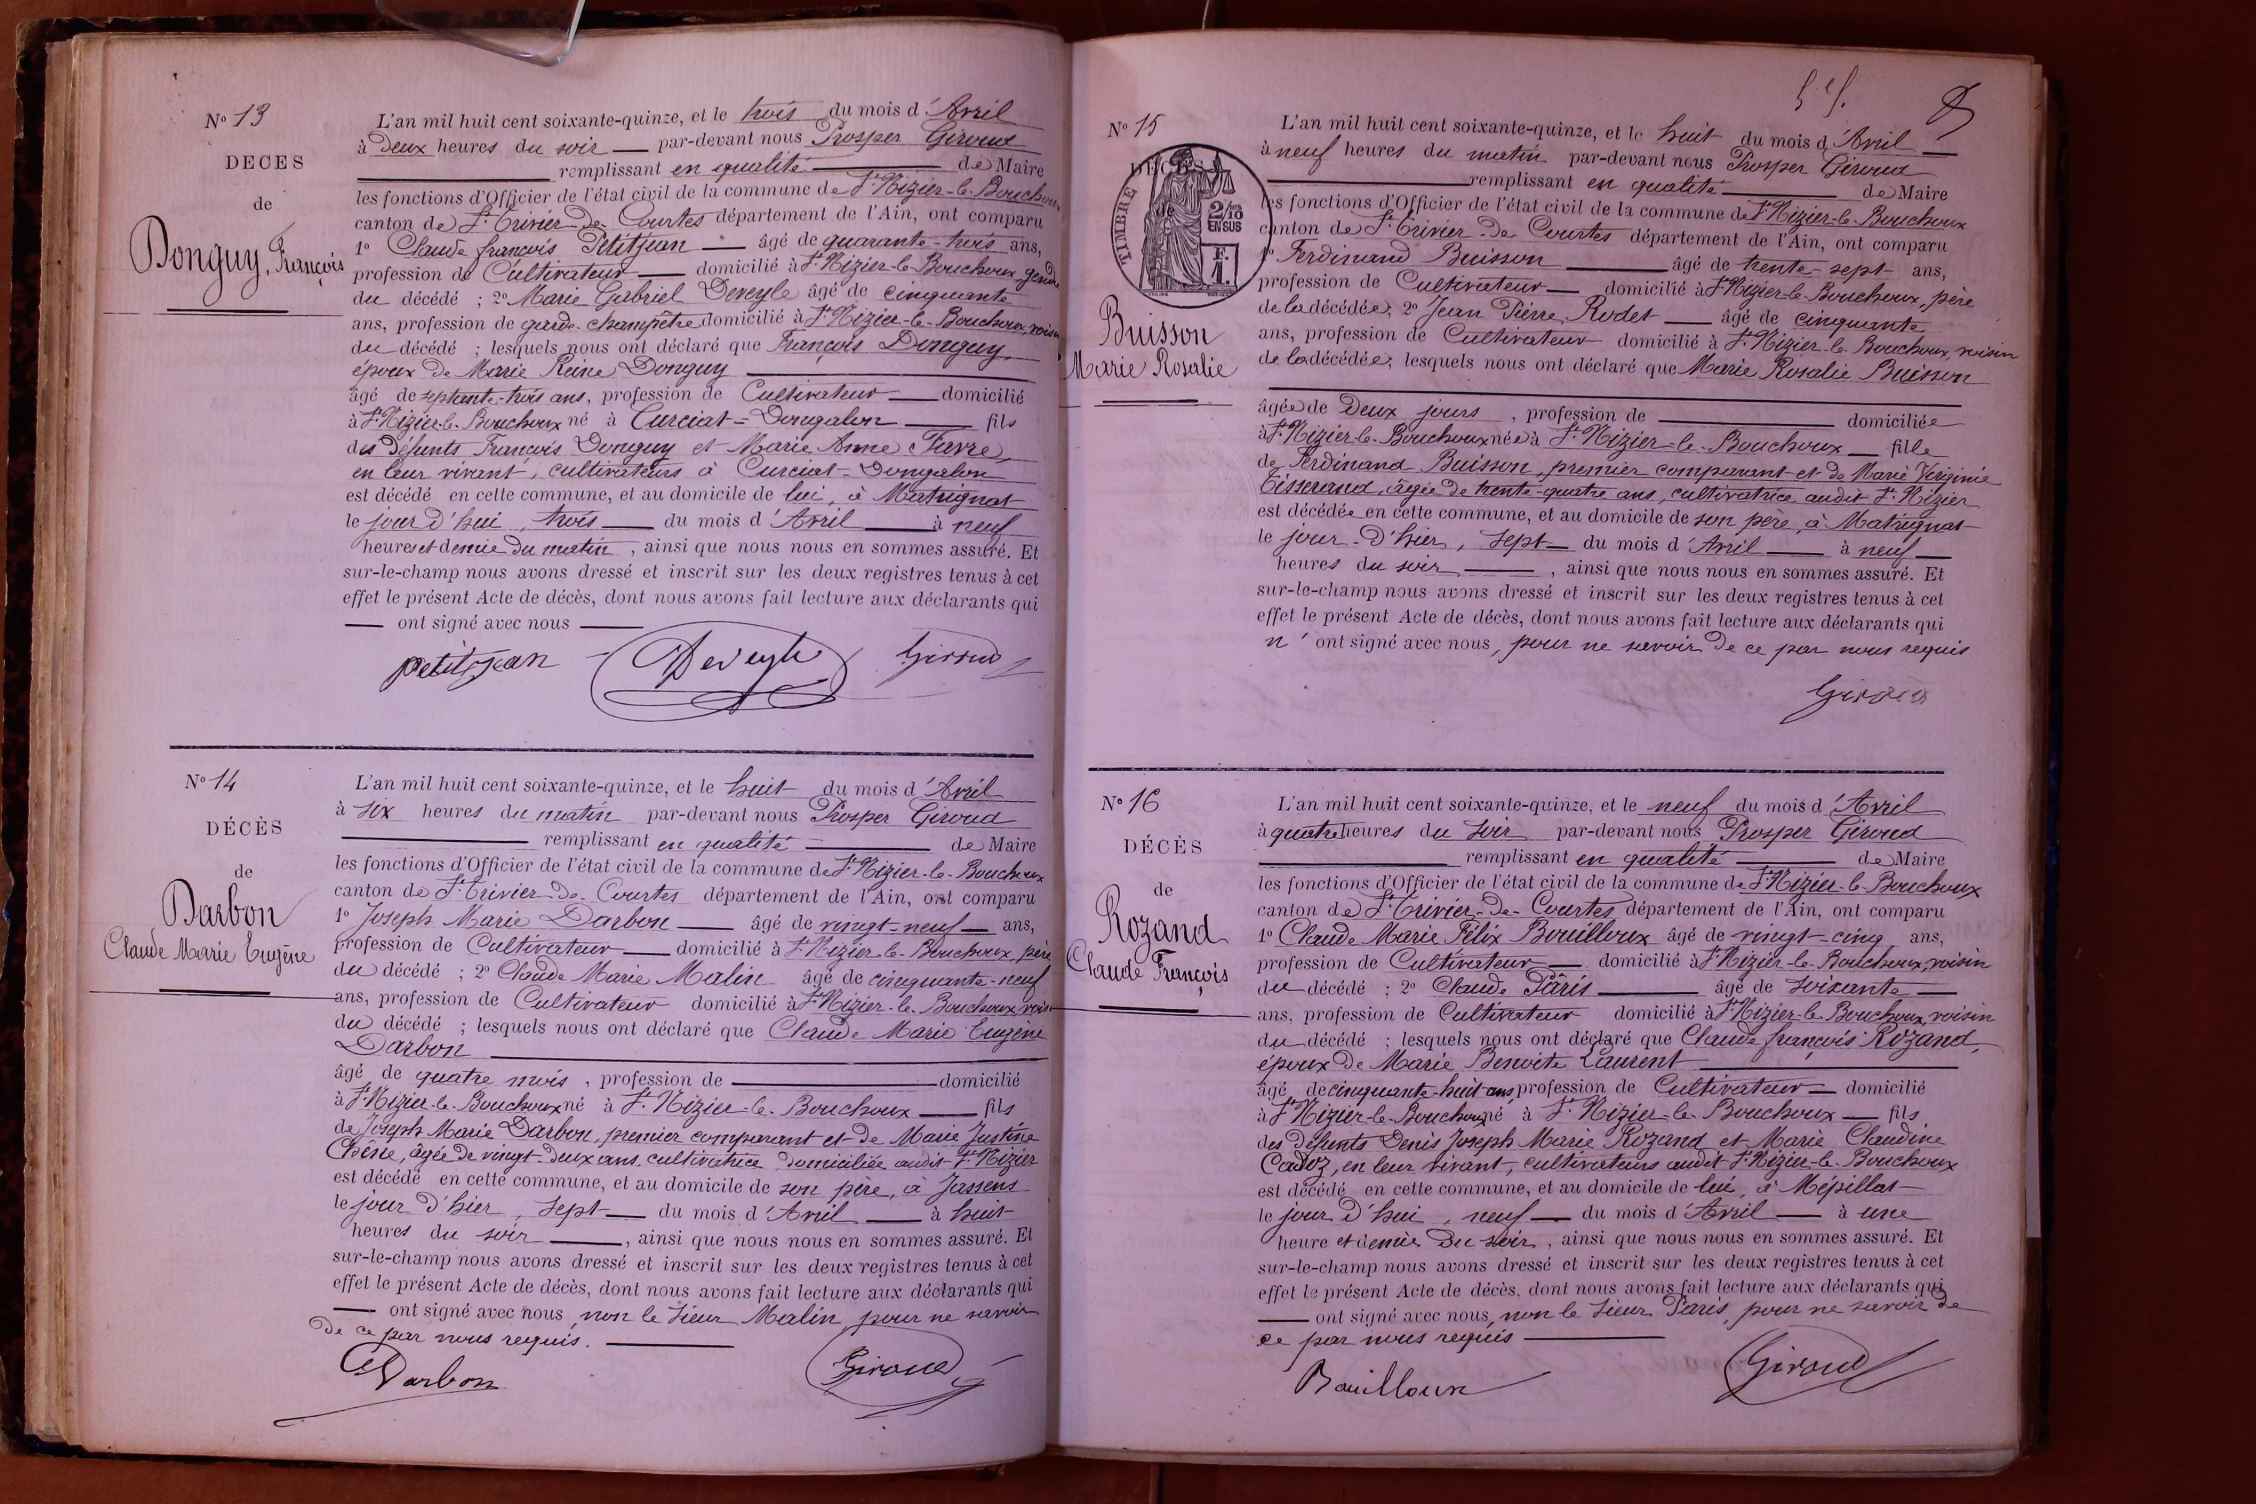 Nº 13
DECES
de
Donguy, François
L'an mil huit cent soixante-quinze, et le trois du mois d'Avril
à Deux heures du soir par-devant nous Prosper Giroud
remplissant en qualité de Maire
les fonctions d'Officier de l'état civil de la commune de St Nizier-le-Bouchoux
canton de St Trivier-de-Courtes département de l'Ain, ont comparu
1º Claude françois Petitjean âgé de quarante-trois ans,
profession de Cultivateur domicilié à St Nizier-le-Bouchoux, gendre
du décédé ; 2º Marie Gabriel Deveyle âgé de cinquante
ans, profession de garde-champêtre domicilié à St Nizier-le-Bouchoux, voisin
du décédé ; lesquels nous ont déclaré que François Donguy,
époux de Marie Reine Donguy
âgé de septante-trois ans, profession de Cultivateur domicilié
à St Nizier-le-Bouchoux né à Curciat-Dongalon fils
des Défunts François Donguy et Marie Anne Favre,
en leur vivant, cultivateurs à Curciat-Dongalon
est décédé en cette commune, et au domicile de lui, à Matrignat
le jour d'hui, trois du mois d'Avril à neuf
heures et demie du matin, ainsi que nous nous en sommes assuré. Et
sur-le-champ nous avons dressé et inscrit sur les deux registres tenus à cet
effet le présent Acte de décès, dont nous avons fait lecture aux déclarants qui
ont signé avec nous
petitjean Deveyle Giroud
Nº 14
DÉCÈS
de
Darbon
Claude Marie Eugène
L'an mil huit cent soixante-quinze, et le huit du mois d'Avril
à six heures du matin par-devant nous Prosper Giroud
remplissant en qualité de Maire
les fonctions d'Officier de l'état civil de la commune de St Nizier-le-Bouchoux
canton de St Trivier-de-Courtes département de l'Ain, ont comparu
1º Joseph Marie Darbon âgé de vingt-neuf ans,
profession de Cultivateur domicilié à St Nizier-le-Bouchoux, père
du décédé ; 2º Claude Marie Malin âgé de cinquante-neuf
ans, profession de Cultivateur domicilié à St Nizier-le-Bouchoux, voisin
du décédé ; lesquels nous ont déclaré que Claude Marie Eugène
Darbon
âgé de quatre mois, profession de domicilié
à St Nizier-le-Bouchoux né à St Nizier-le-Bouchoux fils
de Joseph Marie Darbon, premier comparant et de Marie Justine
âgée de vingt-deux ans, cultivatrice domiciliée audit St Nizier
est décédé en cette commune, et au domicile de son père, à Jassens
le jour d'hier, sept du mois d'Avril à huit
heures du soir, ainsi que nous nous en sommes assuré. Et
sur-le-champ nous avons dressé et inscrit sur les deux registres tenus à cet
effet le présent Acte de décès, dont nous avons fait lecture aux déclarants qui
ont signé avec nous, non le sieur Malin, pour ne savoir
de ce par nous requis.
Darbon Giroud
Nº 15
DÉCÈS
de
TIMBRE
2/10
EN SUS
F.
1.
Buisson
Marie Rosalie
L'an mil huit cent soixante-quinze, et le huit du mois d'Avril
à neuf heures du matin par-devant nous Prosper Giroud
remplissant en qualité de Maire
les fonctions d'Officier de l'état civil de la commune de St Nizier-le-Bouchoux
canton de St Trivier-de-Courtes département de l'Ain, ont comparu
1º Ferdinand Buisson âgé de trente-sept ans,
profession de Cultivateur domicilié à St Nizier-le-Bouchoux, père
de la décédée; 2º Jean Pierre Rodet âgé de cinquante
ans, profession de Cultivateur domicilié à St Nizier-le-Bouchoux, voisin
de la décédée; lesquels nous ont déclaré que Marie Rosalie Buisson
âgée de Deux jours, profession de domiciliée
à St Nizier-le-Bouchoux née à St Nizier-le-Bouchoux fille
de Ferdinand Buisson, premier comparant et de Marie Virginie
Tisserand, âgée de trente-quatre ans, cultivatrice audit St Nizier
est décédée en cette commune, et au domicile de son père, à Matrignat
le jour d'hier, sept du mois d'Avril à neuf
heures du soir, ainsi que nous nous en sommes assuré. Et
sur-le-champ nous avons dressé et inscrit sur les deux registres tenus à cet
effet le présent Acte de décès, dont nous avons fait lecture aux déclarants qui
n'ont signé avec nous, pour ne savoir de ce par nous requis
Giroud
Nº 16
DÉCÈS
de
Rozand
Claude François
L'an mil huit cent soixante-quinze, et le neuf du mois d'Avril
à quatre heures du soir par-devant nous Prosper Giroud
remplissant en qualité de Maire
les fonctions d'Officier de l'état civil de la commune de St Nizier-le-Bouchoux
canton de St Trivier-de-Courtes département de l'Ain, ont comparu
1º Claude Marie Félix Bouilloux âgé de vingt-cinq ans,
profession de Cultivateur domicilié à St Nizier-le-Bouchoux, voisin
du décédé ; 2º Claude Pâris âgé de soixante
ans, profession de Cultivateur domicilié à St Nizier-le-Bouchoux, voisin
du décédé ; lesquels nous ont déclaré que Claude françois Rozand,
époux de Marie Benoite Laurent
âgé de cinquante-huit ans, profession de Cultivateur domicilié
à St Nizier-le-Bouchoux né à St Nizier-le-Bouchoux fils
des défunts Denis Joseph Marie Rozand et Marie Claudine
Cadoz, en leur vivant, cultivateurs audit St Nizier-le-Bouchoux
est décédé en cette commune, et au domicile de lui, à Mépillat
le jour d'hui, neuf du mois d'Avril à une
heure et demie Du soir, ainsi que nous nous en sommes assuré. Et
sur-le-champ nous avons dressé et inscrit sur les deux registres tenus à cet
effet le présent Acte de décès, dont nous avons fait lecture aux déclarants qui
ont signé avec nous, non le sieur Pâris, pour ne savoir de
ce par nous requis
Bouilloux Giroud